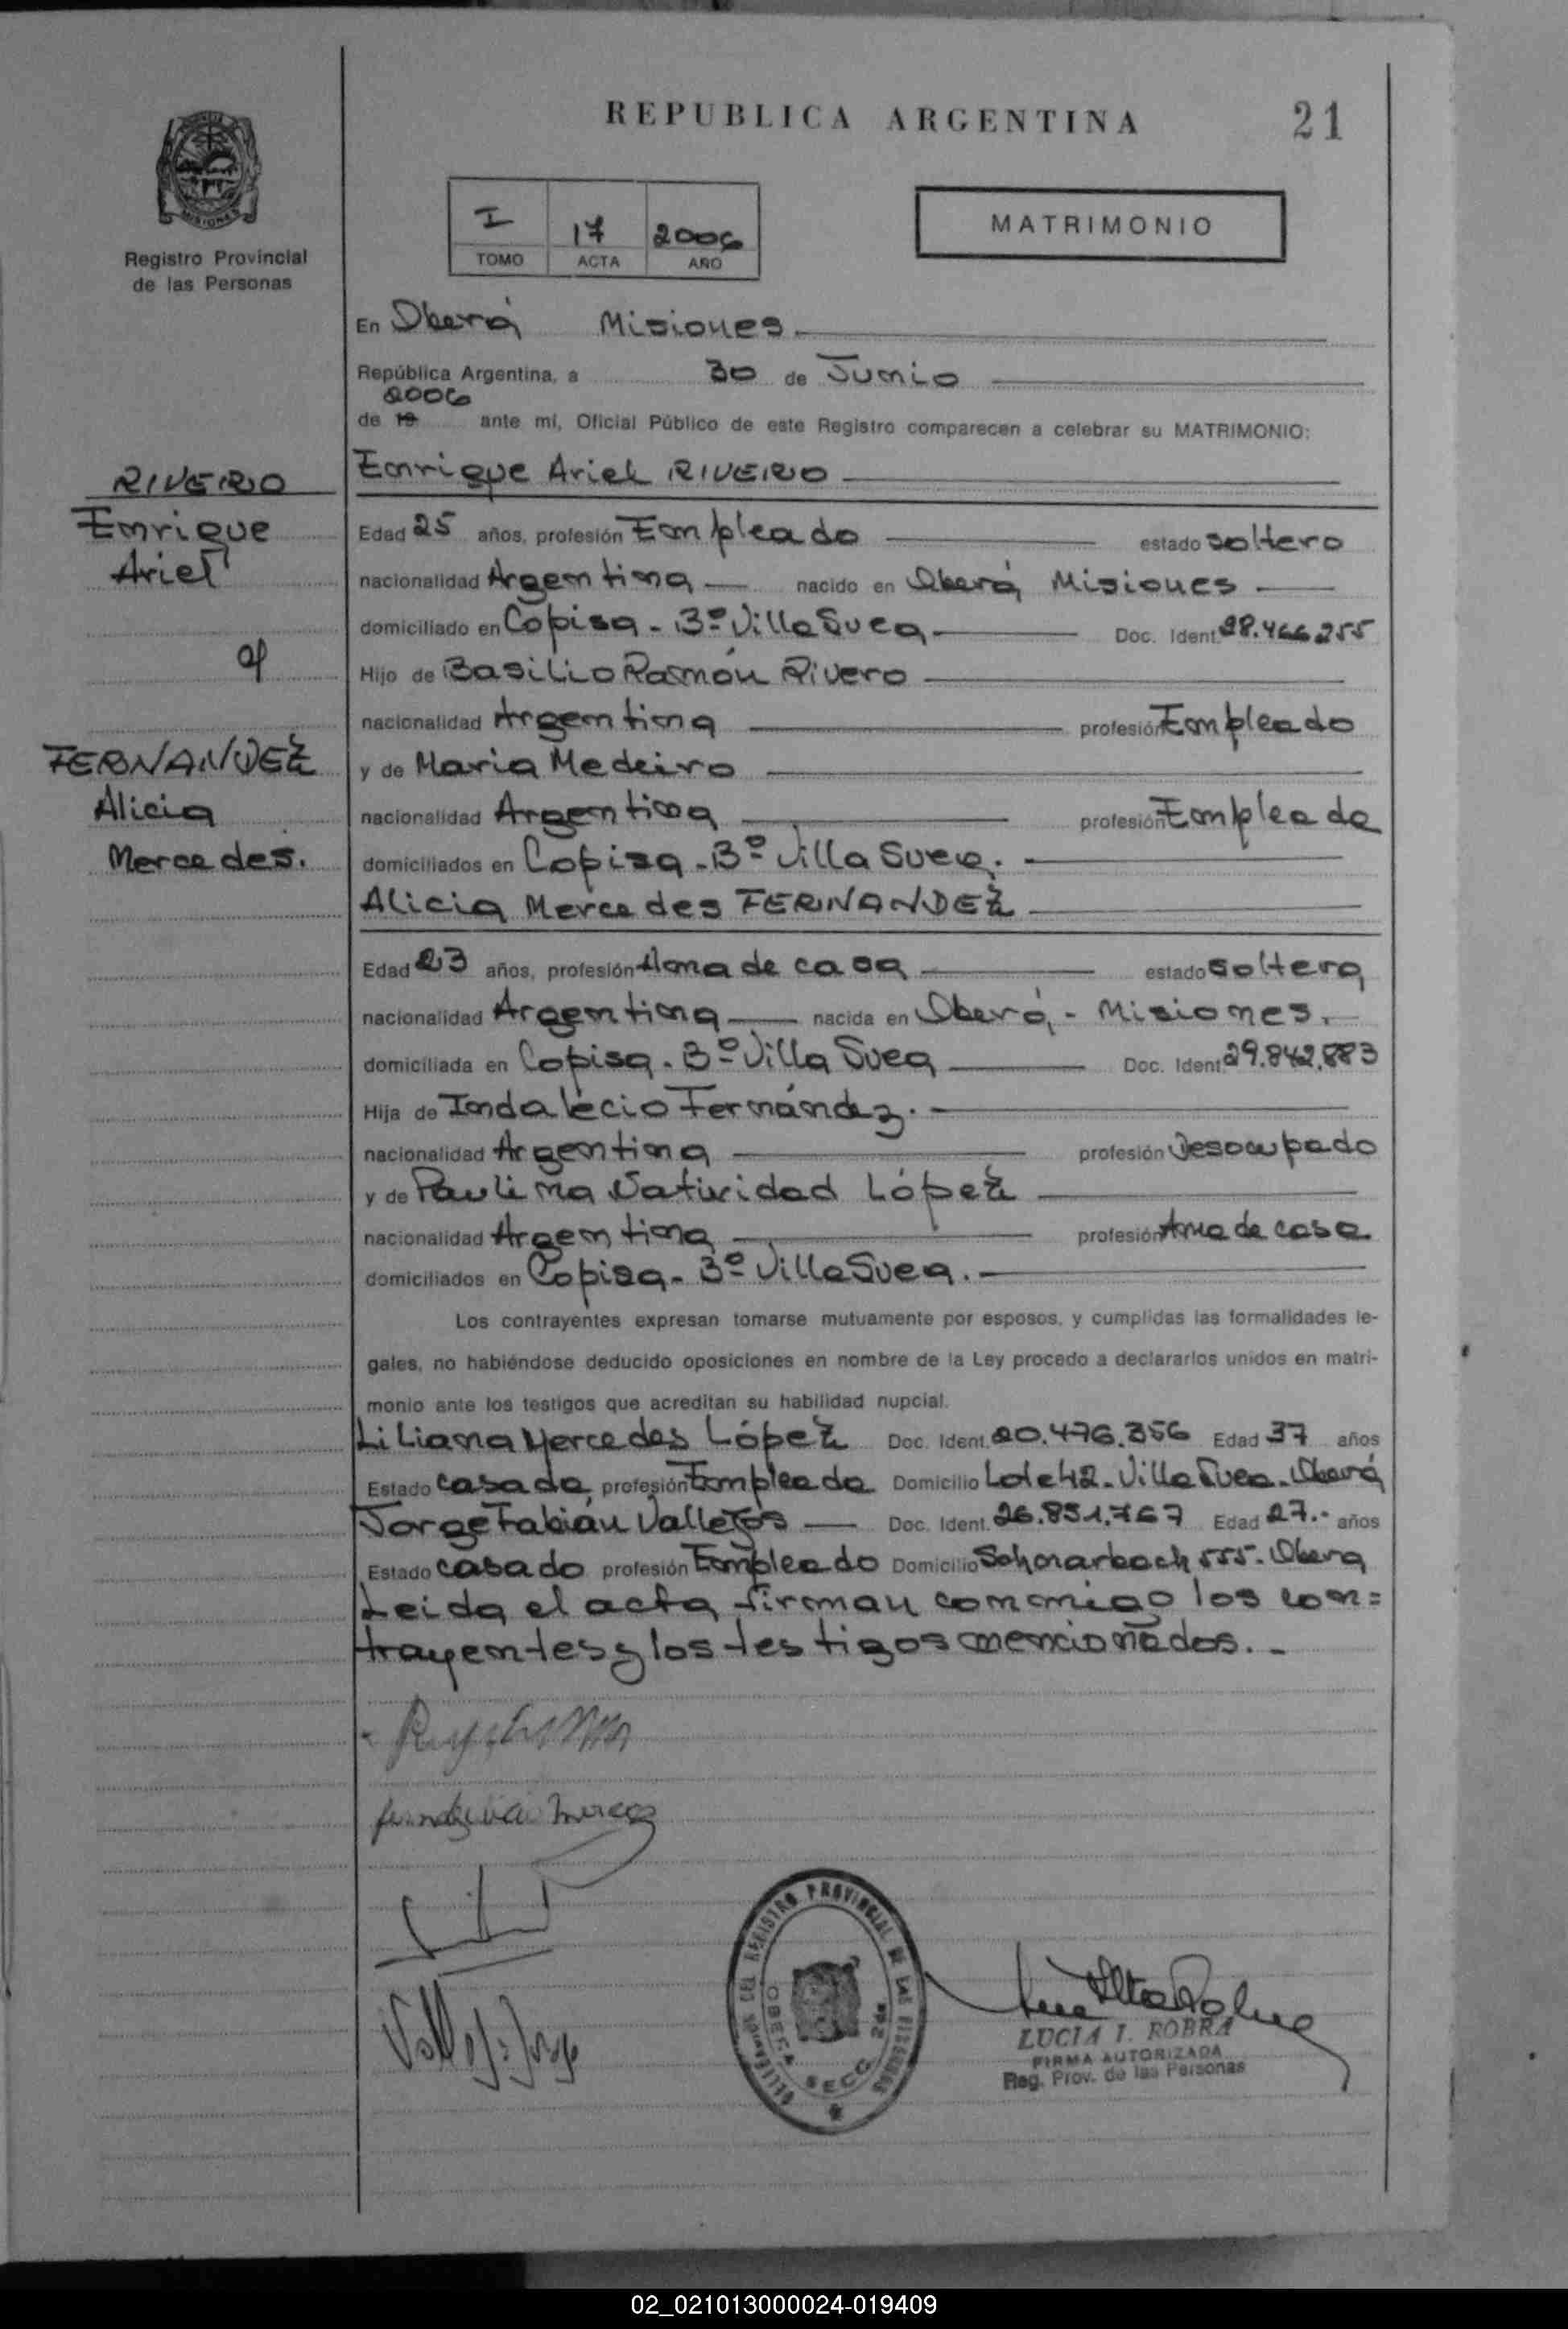 REPUBLICA ARGENTINA
21
MISIONES
Registro Provincial
de las Personas
I 17 2006
TOMO ACTA AÑO
MATRIMONIO
En Oberá Misiones
República Argentina, a 30 de Junio
2006
de 19 ante mí, Oficial Público de este Registro comparecen a celebrar su MATRIMONIO:
Enrique Ariel RIVERO
RIVERO
Enrique
Ariel
c/
FERNANDEZ
Alicia
Mercedes.
Edad 25 años, profesión Empleado estado soltero
nacionalidad Argentina nacido en Oberá Misiones
domiciliado en Copisa - Bº Villa Svea Doc. Ident. 28.466.255
Hijo de Basilio Ramón Rivero
nacionalidad Argentina profesión Empleado
y de Maria Medeiro
nacionalidad Argentina profesión Empleada
domiciliados en Copisa - Bº Villa Svea.
Alicia Mercedes FERNANDEZ
Edad 23 años, profesión Ama de casa estado soltera
nacionalidad Argentina nacida en Oberá - Misiones.
domiciliada en Copisa - Bº Villa Svea Doc. Ident. 29.842.883
Hija de Indalecio Fernández.
nacionalidad Argentina profesión Desocupado
y de Paulina Natividad López
nacionalidad Argentina profesión Ama de casa
domiciliados en Copisa - Bº Villa Svea.
Los contrayentes expresan tomarse mutuamente por esposos, y cumplidas las formalidades le-
gales, no habiéndose deducido oposiciones en nombre de la Ley procedo a declararlos unidos en matri-
monio ante los testigos que acreditan su habilidad nupcial.
Liliana Mercedes López Doc. Ident. 20.476.356 Edad 37 años
Estado casada profesión Empleada Domicilio Lote 42 - Villa Svea - Oberá
Jorge Fabián Vallejos Doc. Ident. 26.851.767 Edad 27.- años
Estado casado profesión Empleado Domicilio 555 - Oberá
Leida el acta firman conmigo los con=
trayentes y los testigos mencionados.-
DEL REGISTRO PROVINCIAL DE LAS PERSONAS
OBERA SECC. 2da.
LUCIA I. ROBRA
FIRMA AUTORIZADA
Reg. Prov. de las Personas
02_021013000024-019409